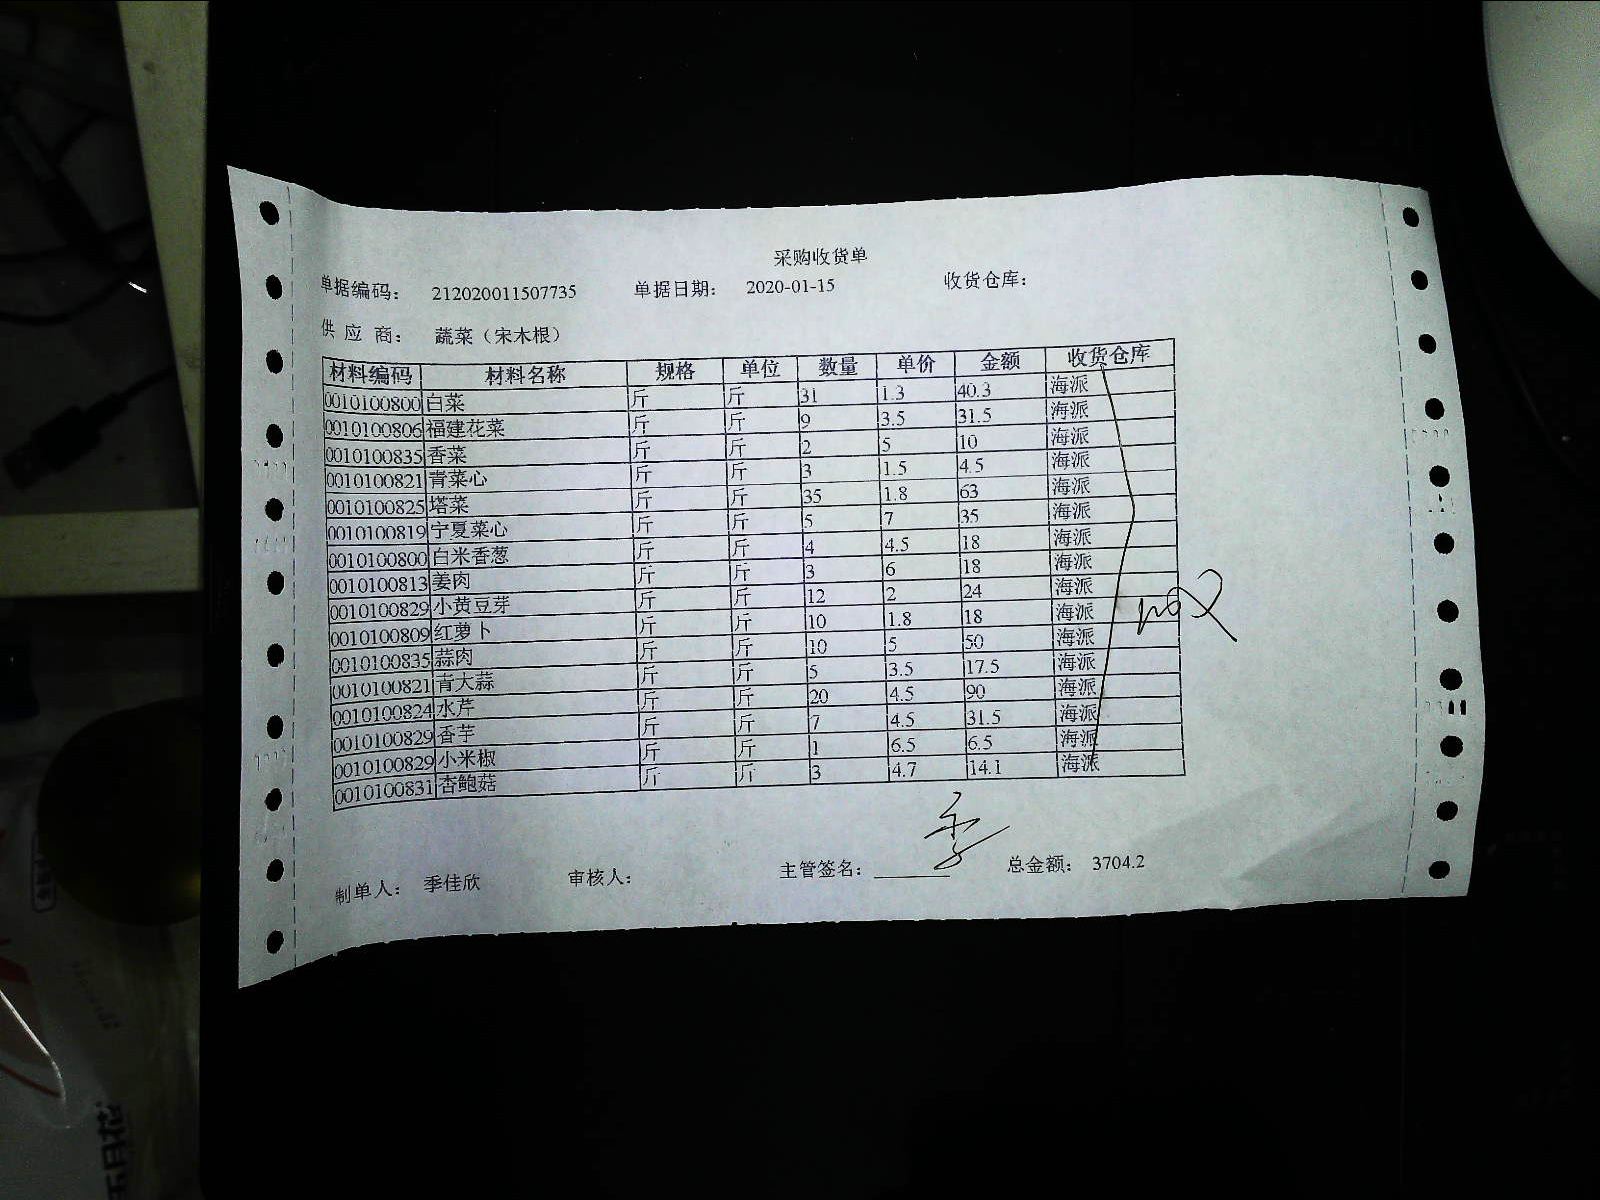 采购收货单
单据编码： 212020011507735 单据日期： 2020-01-15 收货仓库：
供 应 商： 蔬菜（宋木根）
材料编码 材料名称 规格 单位 数量 单价 金额 收货仓库
0010100800 白菜 斤 斤 31 1.3 40.3 海派
0010100806 福建花菜 斤 斤 9 3.5 31.5 海派
0010100835 香菜 斤 斤 2 5 10 海派
0010100821 青菜心 斤 斤 3 1.5 4.5 海派
0010100825 塔菜 斤 斤 35 1.8 63 海派
0010100819 宁夏菜心 斤 斤 5 7 35 海派
0010100800 白米香葱 斤 斤 4 4.5 18 海派
0010100813 姜肉 斤 斤 3 6 18 海派
0010100829 小黄豆芽 斤 斤 12 2 24 海派
0010100809 红萝卜 斤 斤 10 1.8 18 海派
0010100835 蒜肉 斤 斤 10 5 50 海派
0010100821 青大蒜 斤 斤 5 3.5 17.5 海派
0010100824 水芹 斤 斤 20 4.5 90 海派
0010100829 香芋 斤 斤 7 4.5 31.5 海派
0010100829 小米椒 斤 斤 1 6.5 6.5 海派
0010100831 杏鲍菇 斤 斤 3 4.7 14.1 海派
制单人： 季佳欣 审核人： 主管签名： 总金额： 3704.2